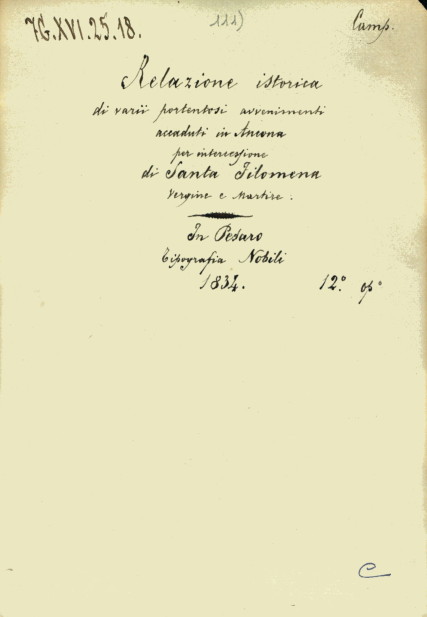 7G.XVI.25.18.
111)
Camp.
Relazione istorica
di varii portentosi avvenimenti
accaduti in Ancona
per intercessione
di Santa Filomena
Vergine e Martire.
In Pesaro
Tipografia Nobili
1834. 12.° op°
C